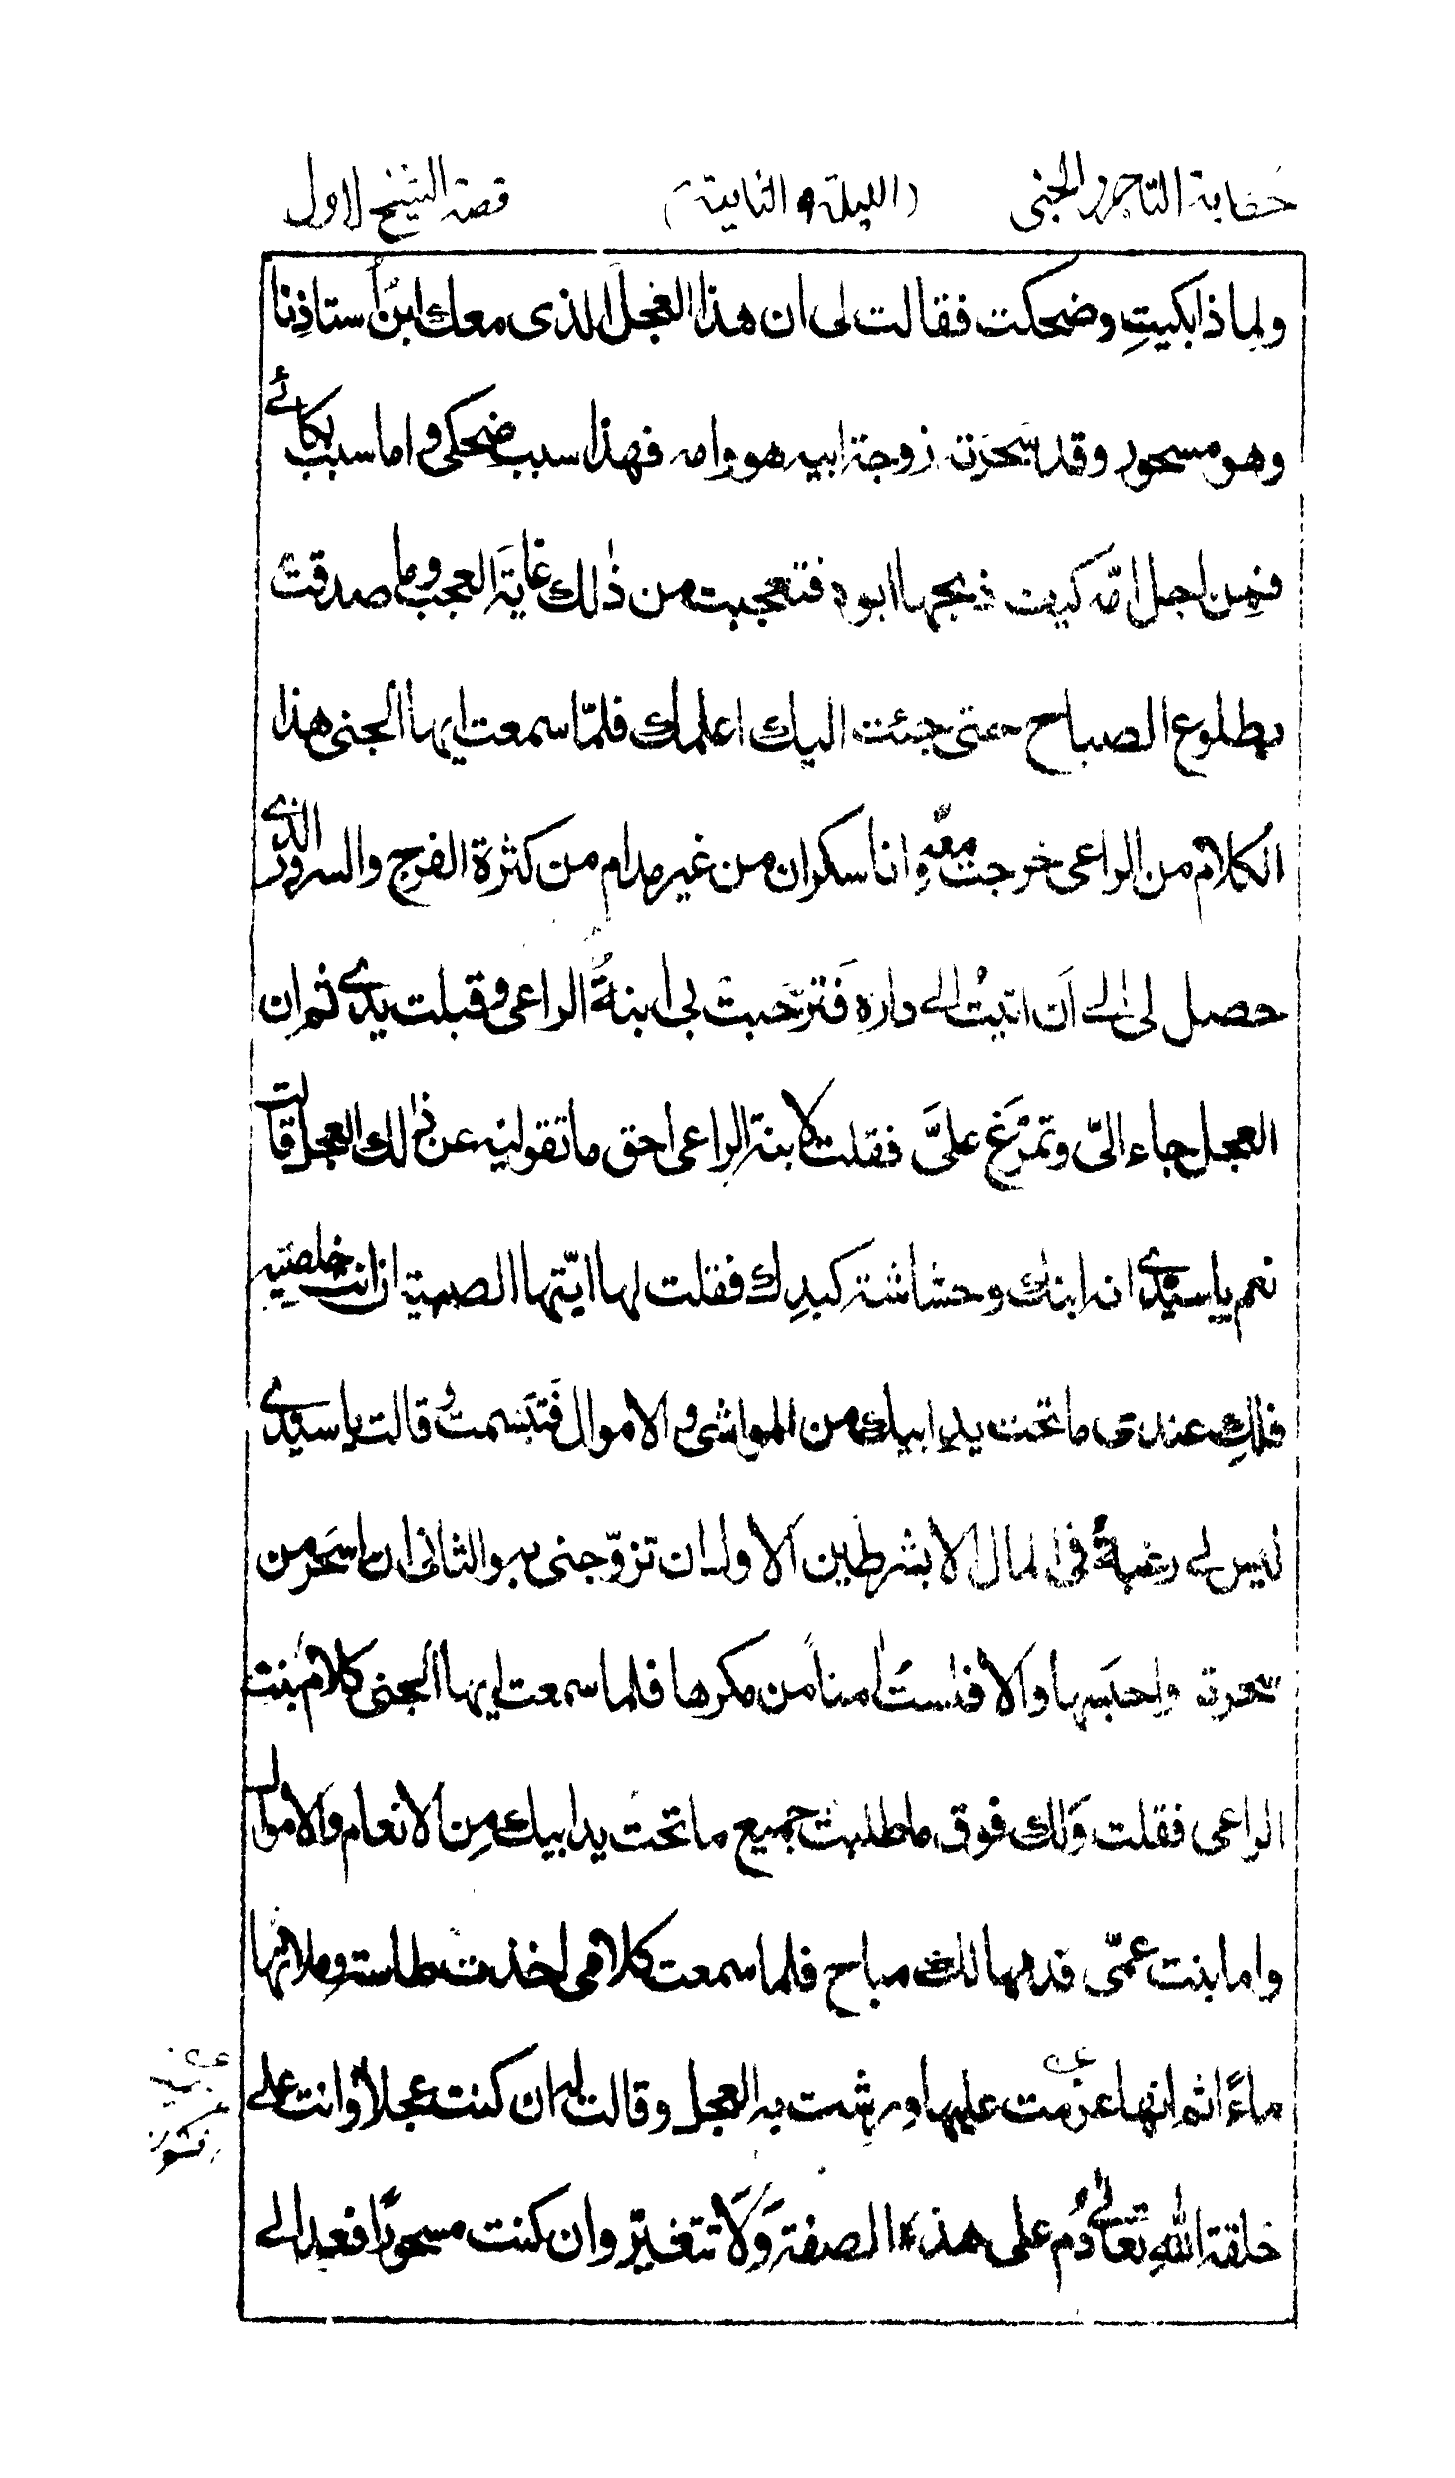 حكاية التاجر والجني (الليلة الثانية) قصة الشيخ الاول
ولماذا بكيتِ وضحكت فقالت لى ان هذا العجل الذى معك ابن أستاذِنا
وهو مسحور وقد سَحَرَته زوجة ابيه هو وامه فهذا سبب ضحكى و اما سبب بكائے
فمِن اجل امّه كيف ذبحها ابوه فتعجبت من ذٰلك غاية العجب وما صدقت
بطلوع الصباح حتى جئت اليك اعلمك فلمّا سمعت ايها الجنى هذا
الكلام من الراعى خرجت معهُ وانا سكران من غير مدام من كثرة الفرح والسرور الذى
حصل لى الٰے اَن اتيتُ الے داره فَترحّبتْ بى ابنةُ الراعى وقبلت يدى ثم ان
العجل جاء الىّ وتمرّغ علىَّ فقلت لابنة الراعى احق ما تقولينه عن ذٰلك العجل قالت
نعم يا سيدى انه ابنك وحشاشة كبدِك فقلت لها ايّتها الصبية ان انت خلصتيه
فلكِ عندى ما تحت يدِ ابيك من المواشى و الاموال فَتبَسمت و قالت يا سيدى
ليس لے رغبةٌ فى المال الا بشرطين الاول ان تزوّجنى به والثانى ان اسحَر من
سحرته واحبَسها والا فلستُ اٰمناً من مكرها فلما سمعت ايها الجنى كلام بنت
الراعى فقلت وَلك فوق ما طلبت جميع ما تحت يد ابيك مِن الانعام والاموال
واما بنت عمّى فدمها لك مباح فلما سمعت كلامى اخذت طاسة وملأتها
ماءً ثم انها عزمت عليها ورشت به العجل وقالت له ان كنت عجلاً وانت على
خلقة اللهِ تعالىٰ دُم على هذه الصفة وَلَا تتغيّر وان كنت مسحوراً فعد الے